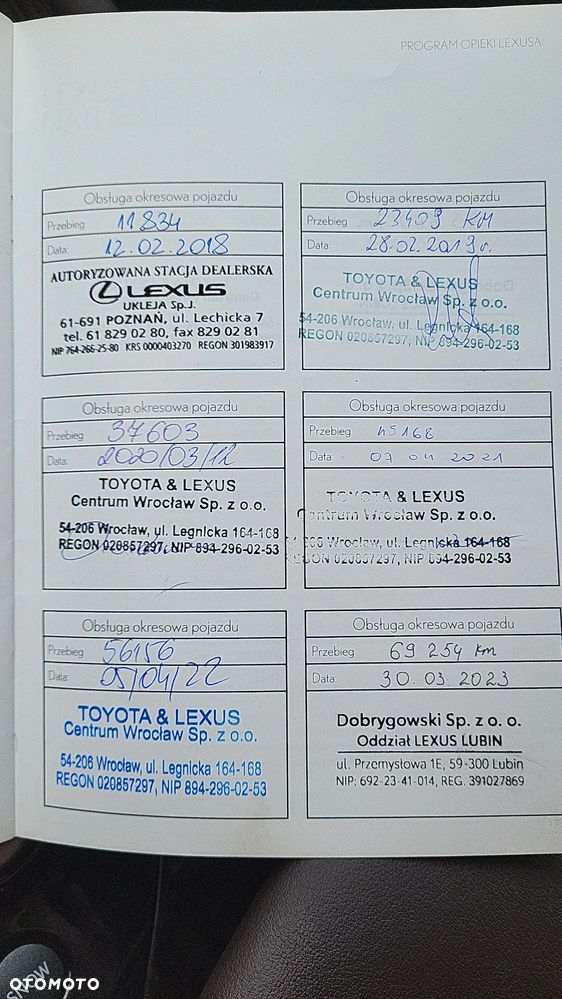 PROGRAM OPIEKI LEXUSA
Obsługa okresowa pojazdu
Przebieg 11834
Data: 12.02.2018
AUTORYZOWANA STACJA DEALERSKA
LEXUS
UKLEJA Sp.J.
61-691 POZNAŃ, ul. Lechicka 7
tel. 61 829 02 80, fax 829 02 81
NIP 764-266-25-80 KRS 0000403270 REGON 301983917
Obsługa okresowa pojazdu
Przebieg 23409 KM
Data: 28.02.2019r.
TOYOTA & LEXUS
Centrum Wrocław Sp. z o.o.
54-206 Wrocław, ul. Legnicka 164-168
REGON 020857297, NIP 894-296-02-53
Obsługa okresowa pojazdu
Przebieg 37603
Data: 2020/03/12
TOYOTA & LEXUS
Centrum Wrocław Sp. z o.o.
54-206 Wrocław, ul. Legnicka 164-168
REGON 020857297, NIP 894-296-02-53
Obsługa okresowa pojazdu
Przebieg 45168
Data: 07.04 2021
TOYOTA & LEXUS
Centrum Wrocław Sp. z o.o.
Wrocław, ul. Legnicka 164-168
REGON 020857297, NIP 894-296-02-53
Obsługa okresowa pojazdu
Przebieg 56156
Data: 05/04/22
TOYOTA & LEXUS
Centrum Wrocław Sp. z o.o.
54-206 Wrocław, ul. Legnicka 164-168
REGON 020857297, NIP 894-296-02-53
Obsługa okresowa pojazdu
Przebieg 69 254 km
Data: 30.03.2023
Dobrygowski Sp. z o. o.
Oddział LEXUS LUBIN
ul. Przemysłowa 1E, 59-300 Lubin
NIP: 692-23-41-014, REG. 391027869
SNOW
OTOMOTO